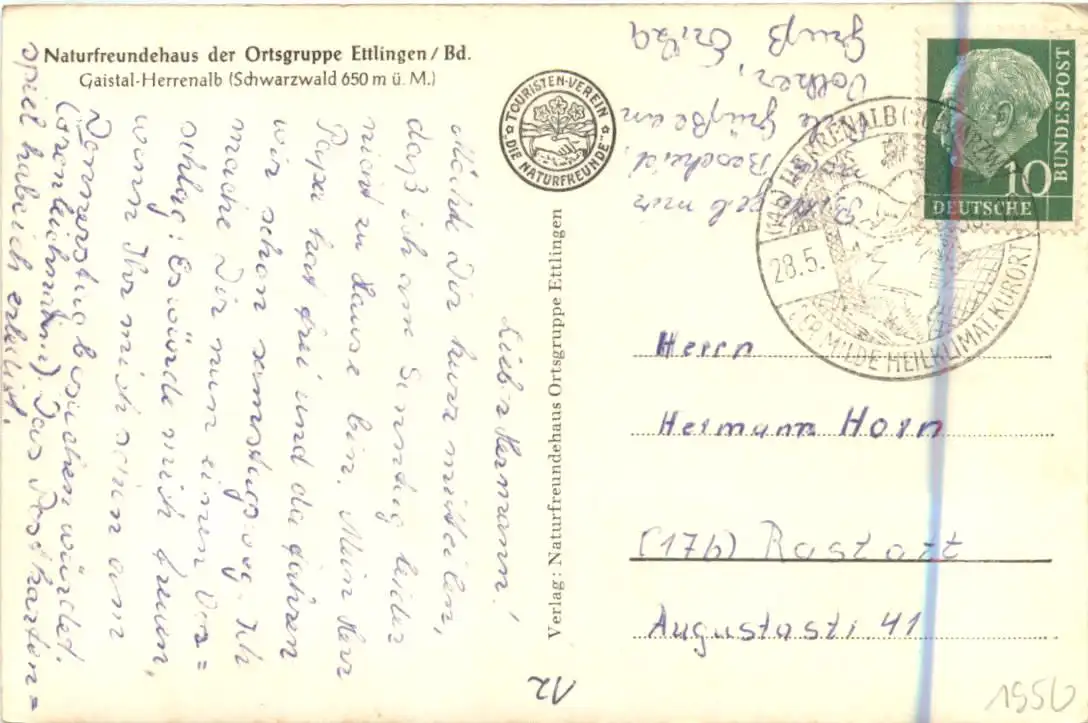 Naturfreundehaus der Ortsgruppe Ettlingen/Bd.
Gaistal-Herrenalb (Schwarzwald 650 m ü. M.)
TOURISTEN-VEREIN
DIE NATURFREUNDE
Lieber Hermann!
Möcht Dir kurz mitteilen,
daß ich am Sonntag leider
nicht zu Hause bin. Mein Herr
Papa hat frei und da fahren
wir schon samstags weg. Ich
mache Dir nun einen Vor=
schlag: Es würde mich freuen,
wenn Ihr mich schon am
Donnerstag besuchen würdet.
(Fronleichnam). Das Postkarten=
spiel habe ich erledigt.
Bitte geb mir
Bescheid.
Viele Grüße an
Volker,
Gruß Erika
Verlag: Naturfreundehaus Ortsgruppe Ettlingen
10
DEUTSCHE
BUNDESPOST
HERRENALB
28.5.
DER MILDE HEILKLIMAT. KURORT
Herrn
Hermann Horn
(17b) Rastatt
Augustastr 41
12
1956